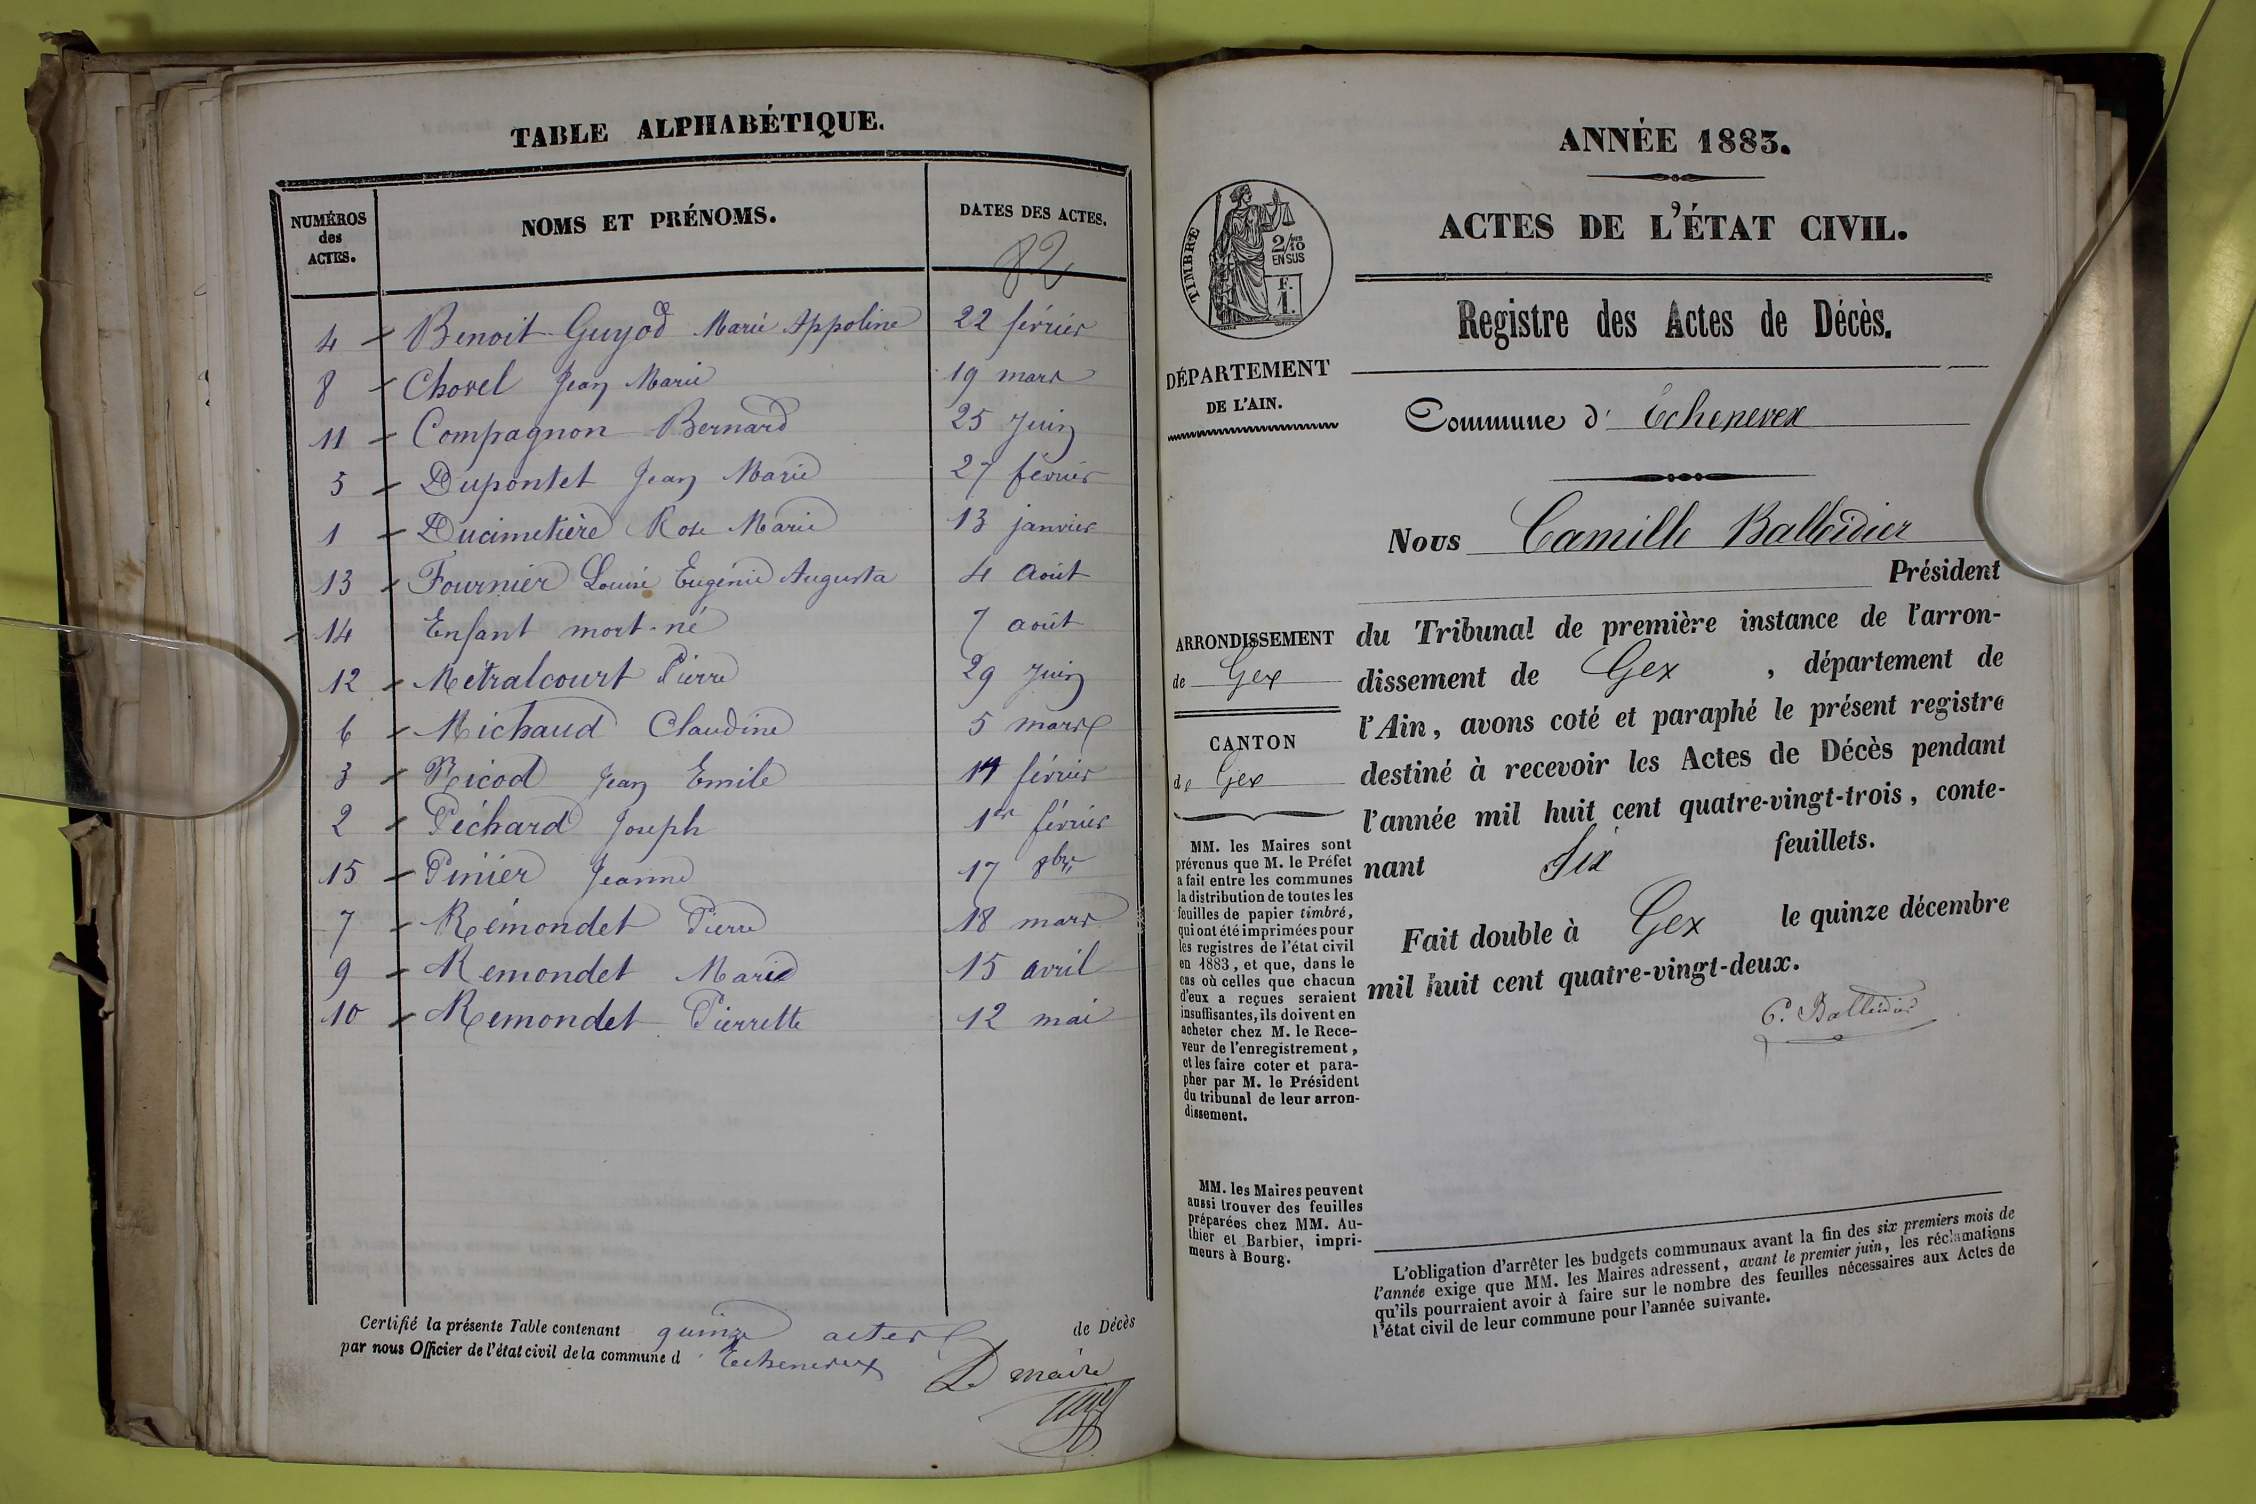 TABLE ALPHABÉTIQUE.
NUMÉROS des ACTES.
NOMS ET PRÉNOMS.
DATES DES ACTES.
82
4 Benoit Guyod Marie Appoline 22 février
8 Chovel Jean Marie 19 mars
11 Compagnon Bernard 25 Juin
5 Dupontet Jean Marie 27 février
1 Ducimetière Rose Marie 13 janvier
13 Fournier Louise Eugénie Augusta 4 Août
14 Enfant mort-né 7 août
12 Métralcourt Pierre 29 Juin
6 Michaud Claudine 5 mars
3 Nicod Jean Emile 14 février
2 Péchard Joseph 1er février
15 Pinier Jeanne 17 8bre
7 Rémondet Pierre 18 mars
9 Remondet Marie 15 avril
10 Remondet Pierrette 12 mai
Certifié la présente Table contenant quinze actes de Décès
par nous Officier de l'état civil de la commune d'Echenevex
Le maire
ANNÉE 1883.
ACTES DE L'ÉTAT CIVIL.
TIMBRE
2/10 EN SUS
F. 1.
Registre des Actes de Décès.
DÉPARTEMENT
DE L'AIN.
Commune d' Echenevex
Nous Camille Balleidier
Président
ARRONDISSEMENT
de Gex
CANTON
de Gex
du Tribunal de première instance de l'arron-
dissement de Gex , département de
l'Ain, avons coté et paraphé le présent registre
destiné à recevoir les Actes de Décès pendant
l'année mil huit cent quatre-vingt-trois, conte-
nant Six feuillets.
Fait double à Gex le quinze décembre
mil huit cent quatre-vingt-deux.
C. Balleidier
MM. les Maires sont
prévenus que M. le Préfet
a fait entre les communes
la distribution de toutes les
feuilles de papier timbré,
qui ont été imprimées pour
les registres de l'état civil
en 1883, et que, dans le
cas où celles que chacun
d'eux a reçues seraient
insuffisantes, ils doivent en
acheter chez M. le Rece-
veur de l'enregistrement,
et les faire coter et para-
pher par M. le Président
du tribunal de leur arron-
dissement.
MM. les Maires peuvent
aussi trouver des feuilles
préparées chez MM. Au-
thier et Barbier, impri-
meurs à Bourg.
L'obligation d'arrêter les budgets communaux avant la fin des six premiers mois de
l'année exige que MM. les Maires adressent, avant le premier juin, les réclamations
qu'ils pourraient avoir à faire sur le nombre des feuilles nécessaires aux Actes de
l'état civil de leur commune pour l'année suivante.